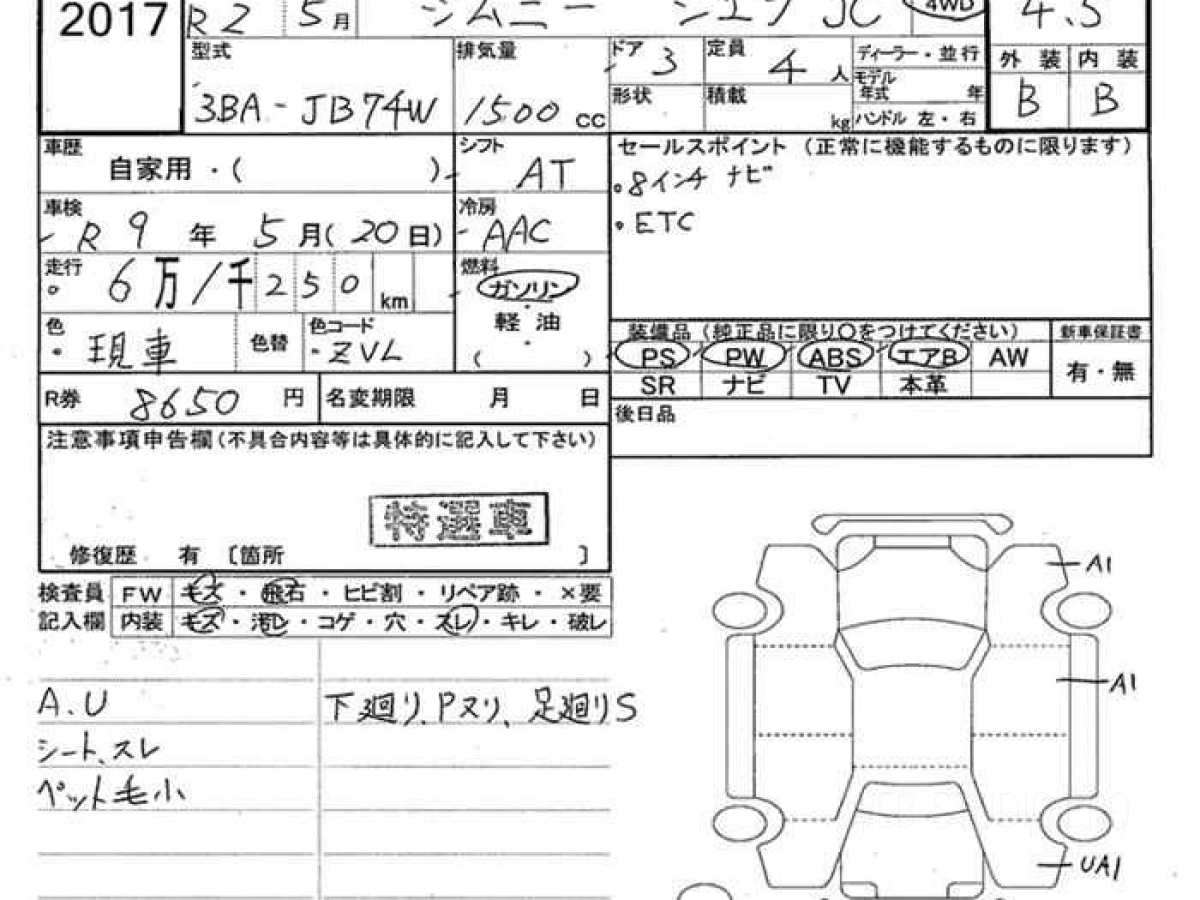 2017 R2 5月 ジムニー シエラ JC 4WD 4.5
型式 排気量 ドア 3 定員 4人 ディーラー・並行 外装 内装
3BA-JB74W 1500 cc 形状 積載 kg モデル年式 年 B B
ハンドル 左・右
車歴 自家用・( ) シフト AT
セールスポイント (正常に機能するものに限ります)
・8インチ ナビ
・ETC
車検 R9年 5月(20日) 冷房 AAC
走行 6万/千250km 燃料 ガソリン
軽油
( )
色 現車 色替 色コード ZVL
装備品(純正品に限り○をつけてください) 新車保証書
PS PW ABS エアB AW 有・無
SR ナビ TV 本革
R券 8650円 名変期限 月 日
後日品
注意事項申告欄(不具合内容等は具体的に記入して下さい)
特選車
修復歴 有 〔箇所 〕
検査員 FW キズ・飛石・ヒビ割・リペア跡・×要
記入欄 内装 キズ・汚レ・コゲ・穴・スレ・キレ・破レ
A.U 下廻り、Pヌリ、足廻りS
シート、スレ
ペット毛小
A1
A1
UA1